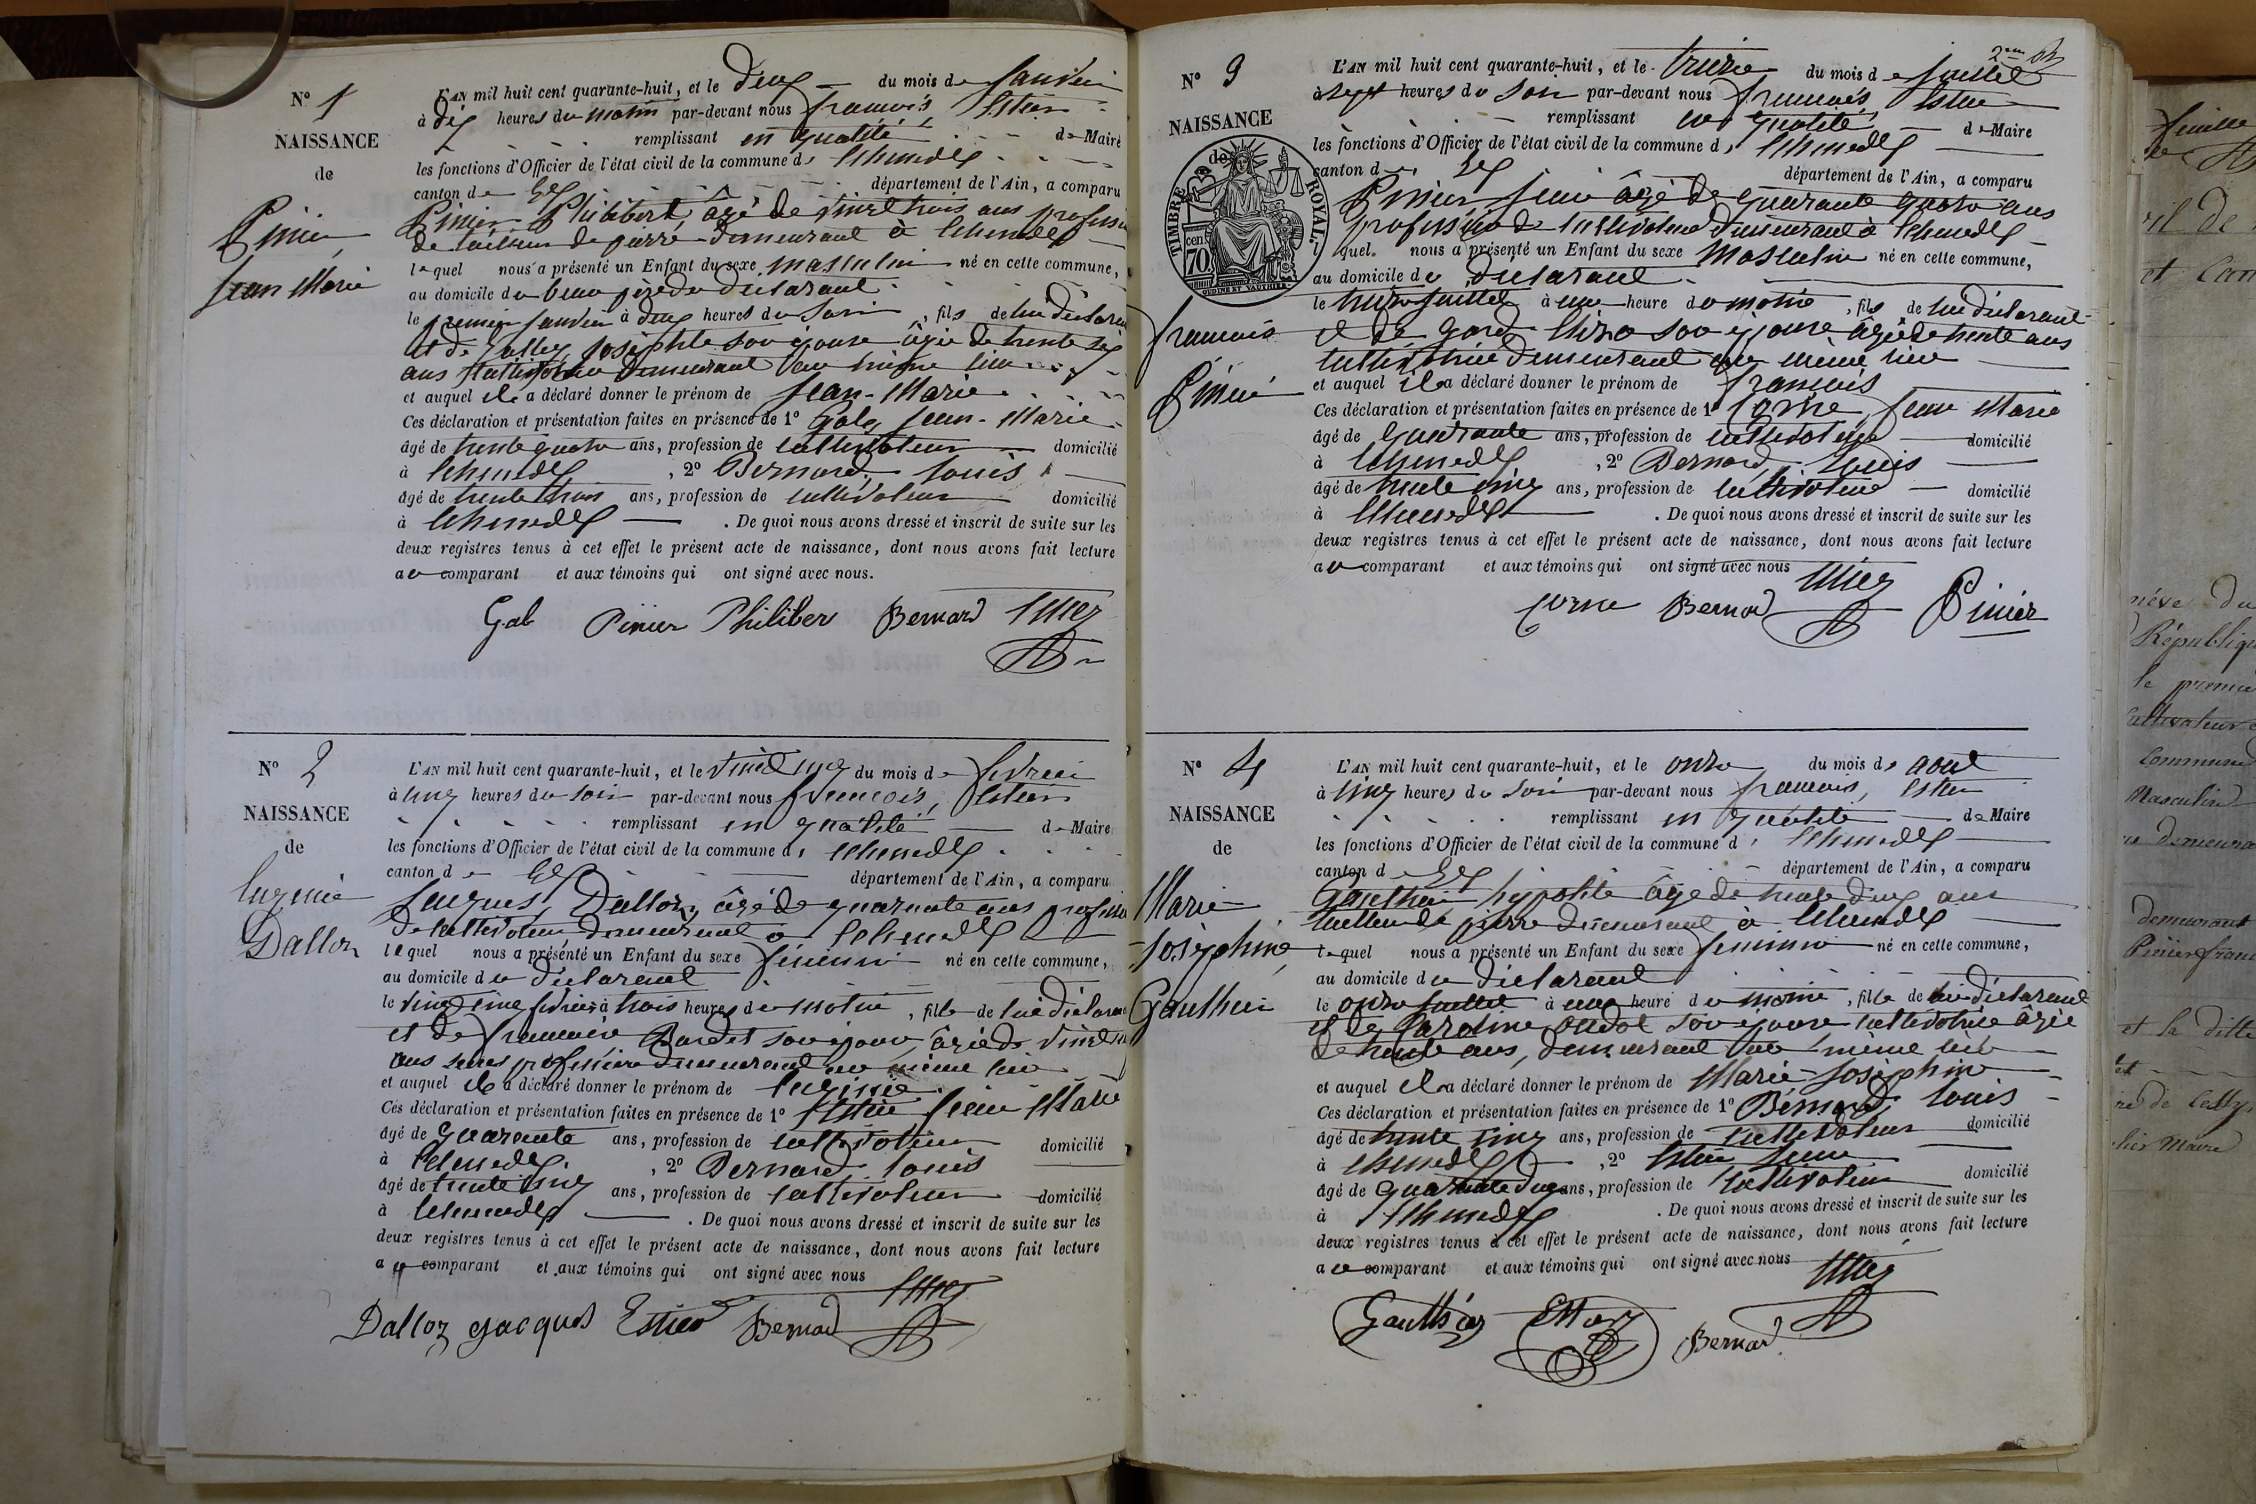 N° 1
NAISSANCE
de
Pinier
Jean Marie
L'AN mil huit cent quarante-huit, et le deux du mois de Janvier
à dix heures du matin par-devant nous françois, Estier
remplissant en qualité de Maire
les fonctions d'Officier de l'état civil de la commune d' Echenevex
canton de Gex département de l'Ain, a comparu
Pinier Philibert, âgé de vingt trois ans profession
de tailleur de pierre demeurant à Echenevex
lequel nous a présenté un Enfant du sexe masculin né en cette commune,
au domicile du beau père du déclarant
le premier Janvier à deux heures du soir, fils de lui déclarant
et de Josephte son épouse âgée de trente six
ans demeurant au même lieu
et auquel il a déclaré donner le prénom de Jean-Marie
Ces déclaration et présentation faites en présence de 1° Galy Jean-Marie
âgé de trente quatre ans, profession de cultivateur domicilié
à Echenevex, 2° Bernard Louis
âgé de trente trois ans, profession de cultivateur domicilié
à Echenevex. De quoi nous avons dressé et inscrit de suite sur les
deux registres tenus à cet effet le présent acte de naissance, dont nous avons fait lecture
au comparant et aux témoins qui ont signé avec nous.
Gal Pinier Philiber Bernard Estier
N° 2
NAISSANCE
de
Eugenie
Dalloz
L'AN mil huit cent quarante-huit, et le vingt cinq du mois de fevrier
à cinq heures du soir par-devant nous françois, Estier
remplissant en qualité de Maire
les fonctions d'Officier de l'état civil de la commune d' Echenevex
canton de Gex département de l'Ain, a comparu
Jacques Dalloz, âgé de quarante ans profession
de cultivateur demeurant à Echenevex
lequel nous a présenté un Enfant du sexe féminin né en cette commune,
au domicile du déclarant
le vingt cinq fevrier à trois heures du matin, fille de lui déclarant
et de son épouse, âgée de vingt
ans sans profession demeurant au même lieu
et auquel il a déclaré donner le prénom de Eugenie
Ces déclaration et présentation faites en présence de 1° Estier Jean Marie
âgé de quarante ans, profession de cultivateur domicilié
à Echenevex, 2° Bernard Louis
âgé de trente cinq ans, profession de cultivateur domicilié
à Echenevex. De quoi nous avons dressé et inscrit de suite sur les
deux registres tenus à cet effet le présent acte de naissance, dont nous avons fait lecture
au comparant et aux témoins qui ont signé avec nous
Dalloz Jacques Estier Bernard Estier
2em
N° 3
NAISSANCE
de
TIMBRE ROYAL
70
cen
françois
Pinier
L'AN mil huit cent quarante-huit, et le treize du mois de Juillet
à sept heures du soir par-devant nous françois, Estier
remplissant en qualité de Maire
les fonctions d'Officier de l'état civil de la commune d' Echenevex
canton d Gex département de l'Ain, a comparu
Pinier Jean âgé de quarante quatre ans
profession de cultivateur demeurant à Echenevex
lequel nous a présenté un Enfant du sexe Masculin né en cette commune,
au domicile du déclarant
le treize Juillet à une heure du matin, fils de lui déclarant
et de son épouse âgée de trente ans
cultivatrice demeurant au même lieu
et auquel il a déclaré donner le prénom de françois
Ces déclaration et présentation faites en présence de 1° Corne, Jean Marie
âgé de quarante ans, profession de cultivateur domicilié
à Echenevex, 2° Bernard Louis
âgé de trente cinq ans, profession de cultivateur domicilié
à Echenevex. De quoi nous avons dressé et inscrit de suite sur les
deux registres tenus à cet effet le présent acte de naissance, dont nous avons fait lecture
au comparant et aux témoins qui ont signé avec nous
Corne Bernard Estier Pinier
N° 4
NAISSANCE
de
Marie
Josephine
Gauthier
L'AN mil huit cent quarante-huit, et le onze du mois d' août
à cinq heures du soir par-devant nous francois, Estier
remplissant en qualité de Maire
les fonctions d'Officier de l'état civil de la commune d' Echenevex
canton de Gex département de l'Ain, a comparu
Gauthier hypolite âgé de trente deux ans
tailleur de pierre demeurant à Echenevex
lequel nous a présenté un Enfant du sexe feminin né en cette commune,
au domicile du déclarant
le onze Juillet à une heure du matin, fille de lui déclarant
et de Caroline oudot son épouse cultivatrice âgée
de trente ans, demeurant au même lieu
et auquel il a déclaré donner le prénom de Marie-Joséphine
Ces déclaration et présentation faites en présence de 1° Bernard Louis
âgé de trente cinq ans, profession de cultivateur domicilié
à Echenevex, 2° Estier Jean
âgé de quarante deux ans, profession de cultivateur domicilié
à Echenevex. De quoi nous avons dressé et inscrit de suite sur les
deux registres tenus à cet effet le présent acte de naissance, dont nous avons fait lecture
au comparant et aux témoins qui ont signé avec nous
Gauthier Estier Bernard Estier